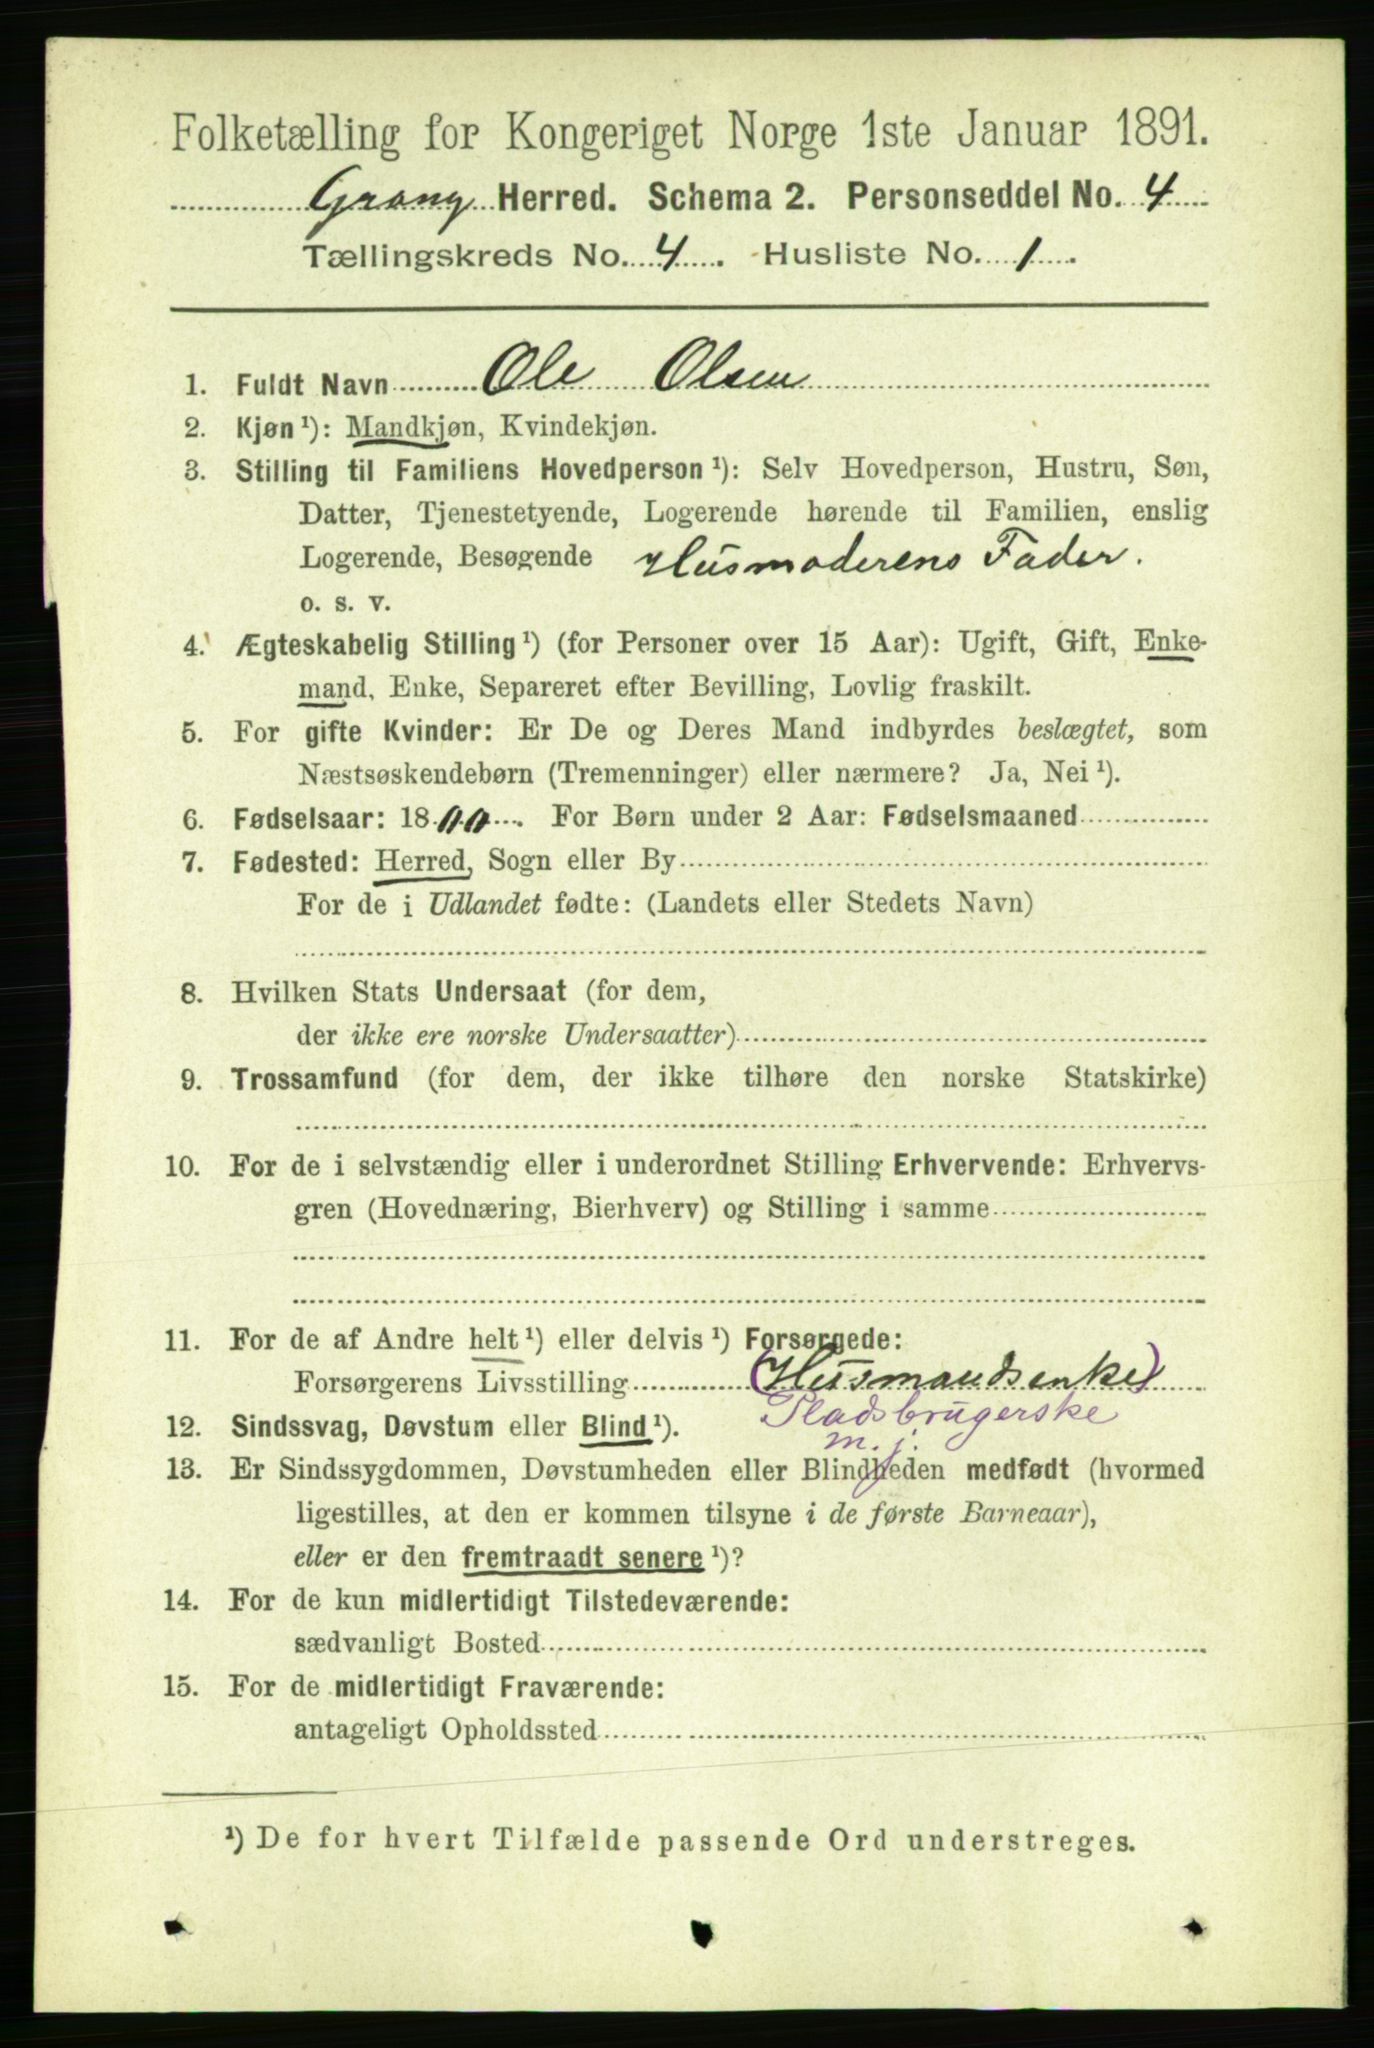 Folketælling for Kongeriget Norge 1ste Januar 1891.
Grong Herred. Schema 2. Personseddel No. 4
Tællingskreds No. 4. Husliste No. 1.
1. Fuldt Navn Ole Olsen
2. Kjøn ¹): Mandkjøn, Kvindekjøn.
3. Stilling til Familiens Hovedperson ¹): Selv Hovedperson, Hustru, Søn,
Datter, Tjenestetyende, Logerende hørende til Familien, enslig
Logerende, Besøgende Husmoderens Fader.
o. s. v.
4. Ægteskabelig Stilling ¹) (for Personer over 15 Aar): Ugift, Gift, Enke-
mand, Enke, Separeret efter Bevilling, Lovlig fraskilt.
5. For gifte Kvinder: Er De og Deres Mand indbyrdes beslægtet, som
Næstsøskendebørn (Tremenninger) eller nærmere? Ja, Nei ¹).
6. Fødselsaar: 1800. For Børn under 2 Aar: Fødselsmaaned
7. Fødested: Herred, Sogn eller By
For de i Udlandet fødte: (Landets eller Stedets Navn)
8. Hvilken Stats Undersaat (for dem,
der ikke ere norske Undersaatter)
9. Trossamfund (for dem, der ikke tilhøre den norske Statskirke)
10. For de i selvstændig eller i underordnet Stilling Erhvervende: Erhvervs-
gren (Hovednæring, Bierhverv) og Stilling i samme
11. For de af Andre helt ¹) eller delvis ¹) Forsørgede:
Forsørgerens Livsstilling (Husmandsenke)
Pladsbrugerske
12. Sindssvag, Døvstum eller Blind ¹).
m. j.
13. Er Sindssygdommen, Døvstumheden eller Blindheden medfødt (hvormed
ligestilles, at den er kommen tilsyne i de første Barneaar),
eller er den fremtraadt senere ¹)?
14. For de kun midlertidigt Tilstedeværende:
sædvanligt Bosted
15. For de midlertidigt Fraværende:
antageligt Opholdssted
¹) De for hvert Tilfælde passende Ord understreges.